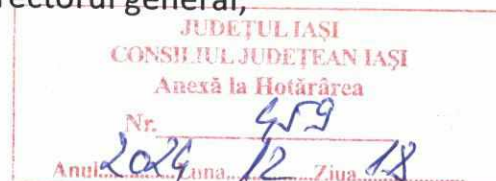 rectorul general,
JUDEȚUL IAȘI
CONSILIUL JUDEȚEAN IAȘI
Anexă la Hotărârea
Nr. 459
Anul 2024 Luna 12 Ziua 18